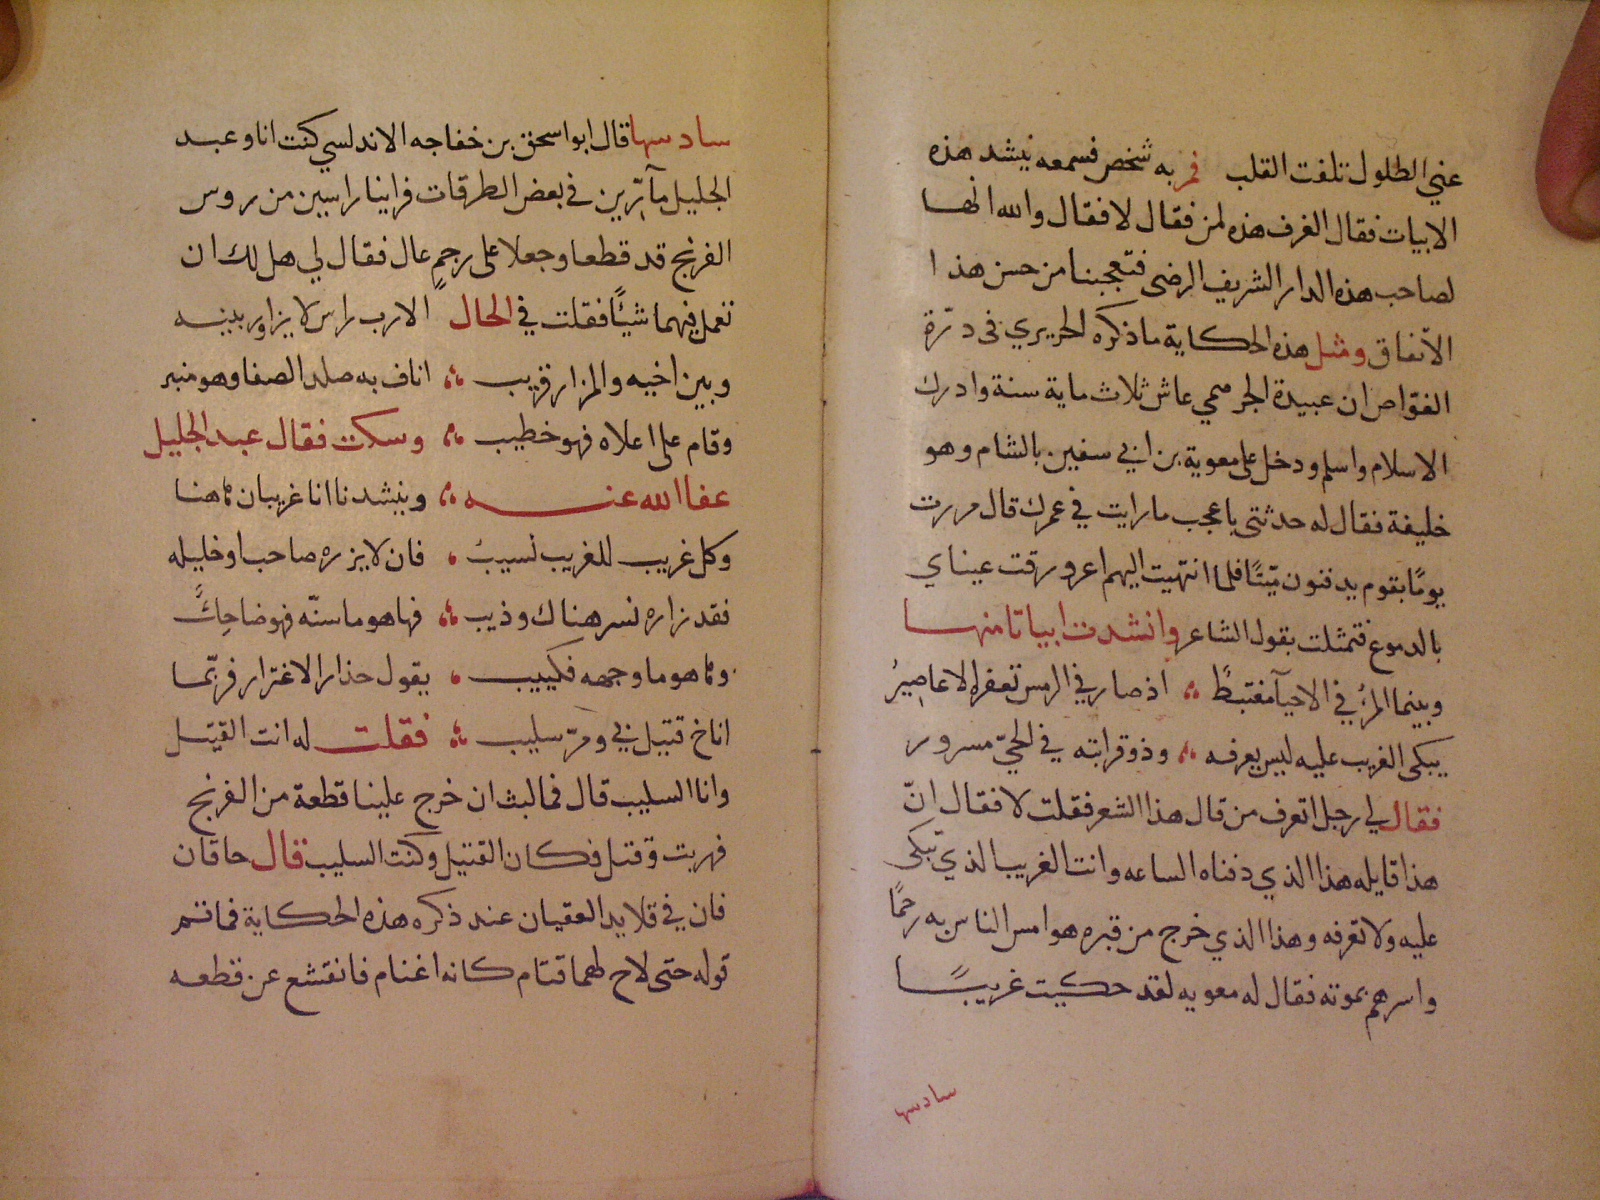 عني الطلول تلفت القلب فمر به شخص فسمعه ينشد هذه
الابيات فقال اتعرف هذه لمن فقال لا فقال والله انها
لصاحب هذه الدار الشريف الرضى فتعجبنا من حسن هذا
الاتفاق ومثل هذه الحكاية ما ذكره الحريري فى درّة
الغوّاص ان عبيدة الجرهمي عاش ثلاث ماية سنة وادرك
الاسلام واسلم ودخل على معوية بن ابي سفين بالشام وهو
خليفة فقال له حدثنى باعجب ما رايت في عمرك قال مررت
يومًا بقوم يدفنون ميّتًا فلما انتهيت اليهم اغرورقت عيناي
بالدموع فتمثلت بقول الشاعر وانشدت ابياتا منها
وبينما المرُ في الاحيآ مغتبطٌ اذ صار في الرمس تعفره الاعاصيرُ
يبكى الغريب عليه ليس يعرفه وذو قرابته في الحيّ مسرور
فقال لي رجل اتعرف من قال هذا الشعر فقلت لا فقال انّ
هذا قايله هذا الذي دفناه الساعه وانت الغريب الذي تبكى
عليه ولا تعرفه وهذا الذي خرج من قبره هو امس الناس به رحمًا
واسرهم بموته فقال له معويه لقد حكيت غريبًا
سادسها
سادسها قال ابو اسحق بن خفاجه الاندلسي كنت انا وعبد
الجليل مآرّين في بعض الطرقات فراينا راسين من روس
الفرنج قد قطعا وجعلا على رجمٍ عال فقال لي هل لك ان
تعمل فيهما شيئًا فقلت في الحال الا رب راس لا يزاور بينه
وبين اخيه والمزار قريب اناف به صلد الصفا وهو منبر
وقام على اعلاه فهو خطيب وسكت فقال عبد الجليل
عفا الله عنه وينشدنا انا غريبان هاهنا
وكل غريب للغريب نسيبُ فان لا يزره صاحب او خليله
فقد زاره نسر هناك وذيب فها هو ما سنّه فهو ضاحِكٌ
وها هو ما وجهه فكييب يقول حذار الاغترار فربّما
اناخ قتيل في ومرّ سليب فقلت له انت القتيل
وانا السليب قال فما لبث ان خرج علينا قطعة من الفرنج
فهربت وقتل فكان القتيل وكنت السليب قال خاقان
فان في قلايد العقيان عند ذكره هذه الحكاية فما تم
قوله حتى لاح لهما قتام كانه اغنام فانقشع عن قطعه